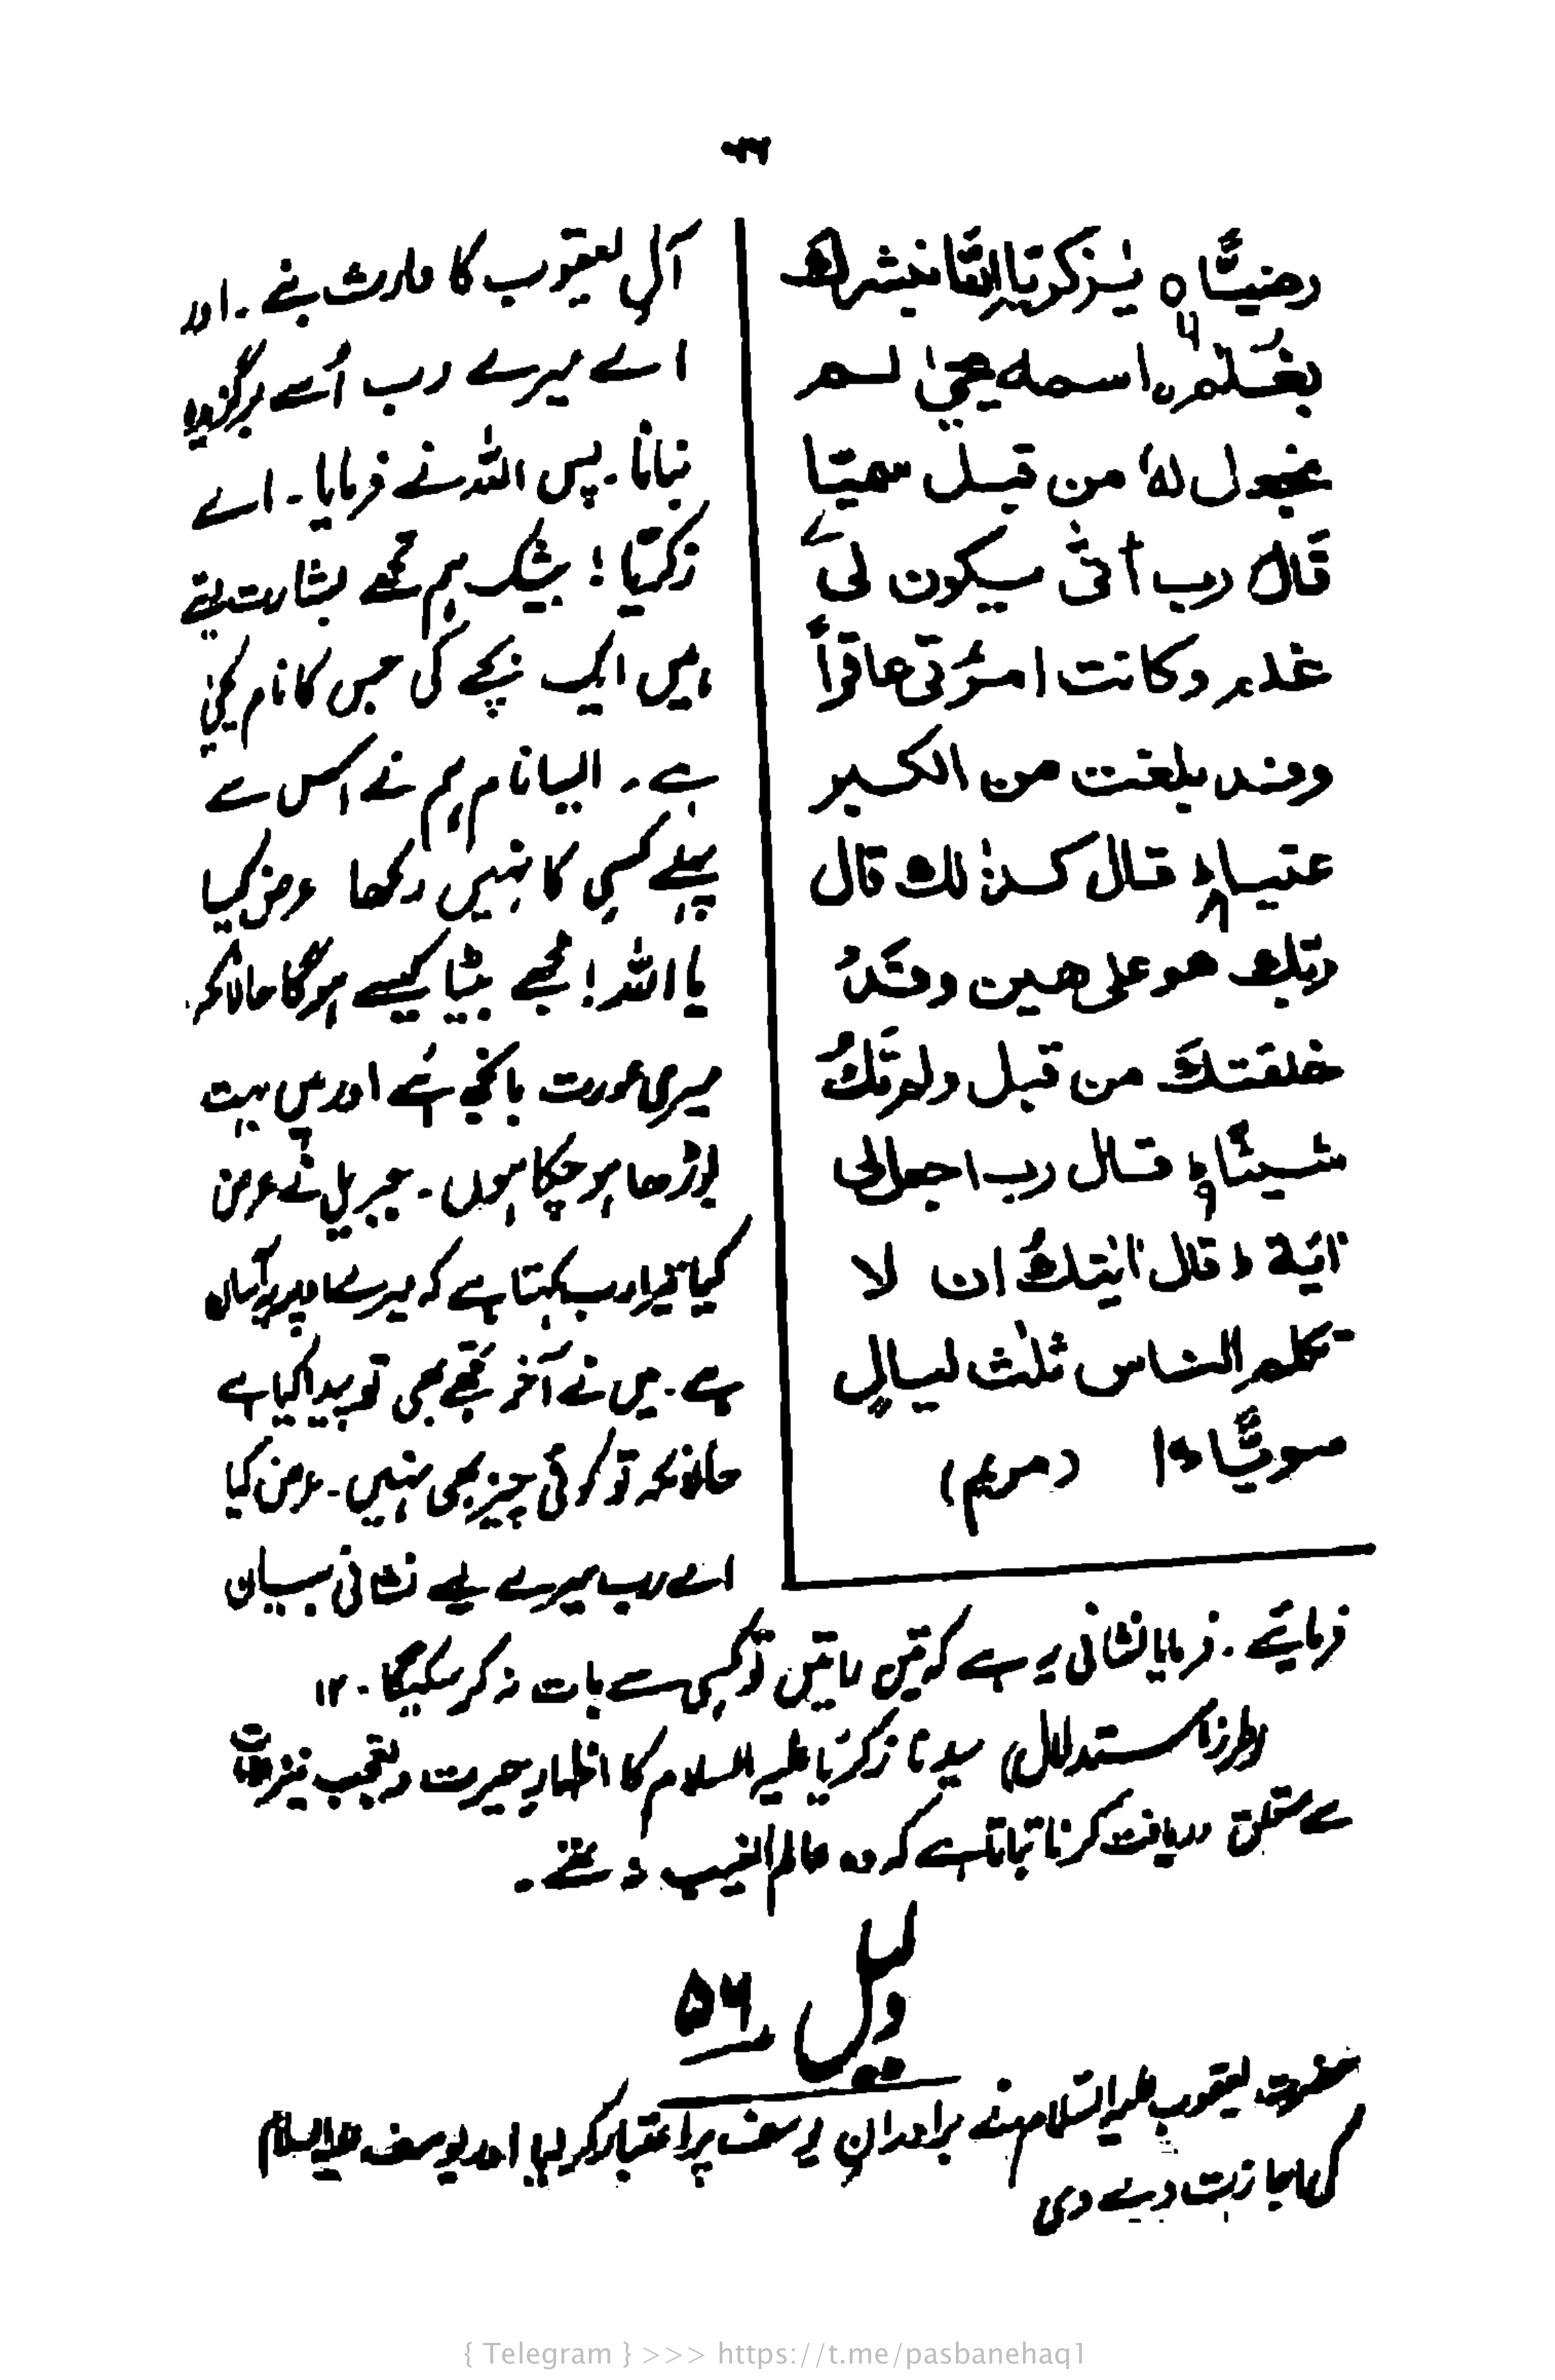 رضیًّا ه یٰزکریا انّا نبشرك
بغلٰم ن اسمه یحیٰ لـم
نجعل لهٗ من قبـل سمیّا
قال رب انّٰی یکون لی
غلٰم وکانت امرَءتی عاقراً
وقد بلغت من الکـبر
عتیـا ۸ قـال کـذٰلك قال
ربّك هو علی هین وقَدْ
خلقتـكَ من قبل ولم تكُ
شـیئًا ۹ قـال رب اجعل لی
اٰیة ط قال اٰیتـكَ ان لا
تکلم النـاس ثلٰث لیـالٍ
سویًّا ۱۰ (مریم)
آلِ یعقوب کا وارث بنے ۔ اور
اے میرے رب اُسے برگزیدہ
بنانا ۔ پس اللہ نے فرمایا ۔ اے
زکریّا ! بیشک ہم تجھے بشارت دیتے
ہیں ایک بچے کی جس کا نام یحیٰی
ہے ۔ ایسا نام ہم نے اس سے
پہلے کسی کا نہیں رکھا عرض کیا
یا اللہ ! مجھے بیٹا کیسے ہوگا حالانکہ
میری عورت بانجھ ہے اور میں بہت
بوڑھا ہو چکا ہوں ۔ جبریل نے عرض
کیا تیرا رب کہتا ہے کہ میرے اوپر یہ آسان
ہے ۔ میں نے آخر تجھے بھی تو پیدا کیا ہے
حالانکہ تو کوئی چیز بھی نہیں ۔ عرض کیا
اے رب میرے لیے نشانی بیـان
فرمائیے ۔ فرمایا نشانی یہ ہے کہ تین راتیں تو کسی سے بات نہ کر سکیگا ۔ ۱۲
(طرز استدلال) سیدنا زکریّا علیہ السلام کا اظہارِ حیرت و تعجب نیز
سے متعلق دریافت کرنا بتاتا ہے کہ وہ عالم الغیب نہ تھے ۔
دلیل ۵۶
حضرت یعقوب علیہ السّلام نے برادرانِ یوسف پر اعتبار کر لیا اور یوسف علیہ السلام
کی اجازت دے دی
{ Telegram } >>> https://t.me/pasbanehaq1